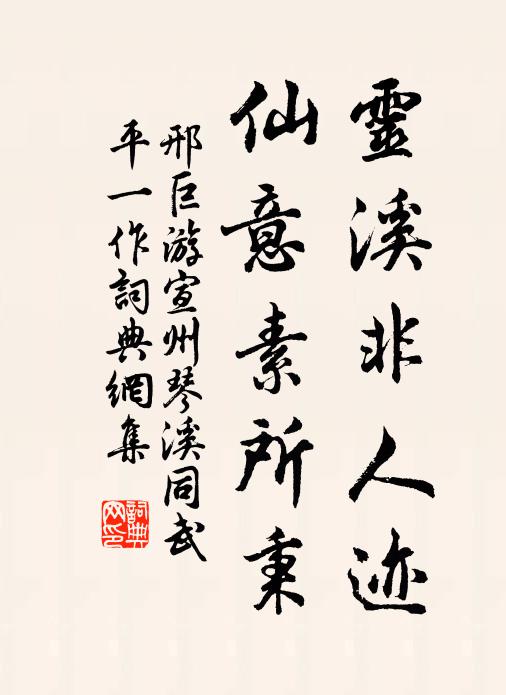 靈溪非人迹
仙意素所秉
邢巨游宣州琴溪同武
平一作詞典網集
詞典网印